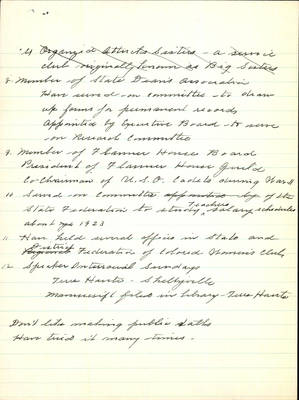 Organized Altruists Sisters - a service
club originally known as Big Sisters
8. Member of State Dean's Association
Have served on committee to draw
up forms for permanent records
Appointed by Executive Board to serve
on Research Committee
9. Member of Flanner House Board
President of Flanner House Guild
Co-chairman of U.S.O. Cadets during War II
10. Served on Committee appointed by of the
State Federation to study Teachers salary schedules
about yr 1923
11. Have held several offices in State and
District Federation of Colored Women's Clubs
12. Speaker Interracial Sundays
Terre Haute - Shelbyville
Manuscript filed in library - Terre Haute
Don't like making public talks
Have tried it many times.